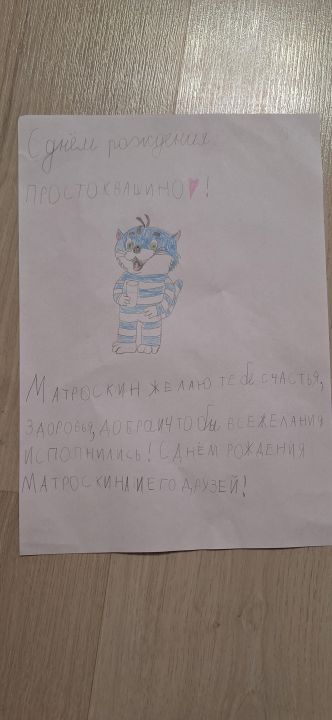 С днём рождения
ПРОСТОКВАШИНО!
МАТРОСКИН ЖЕЛАЮ ТЕБЕ СЧАСТЬЯ,
ЗДОРОВЬЯ, ДОБРА И ЧТО БЫ ВСЕ ЖЕЛАНИЯ
ИСПОЛНИЛИСЬ! С ДНЁМ РОЖДЕНИЯ
МАТРОСКИНА И ЕГО ДРУЗЕЙ!